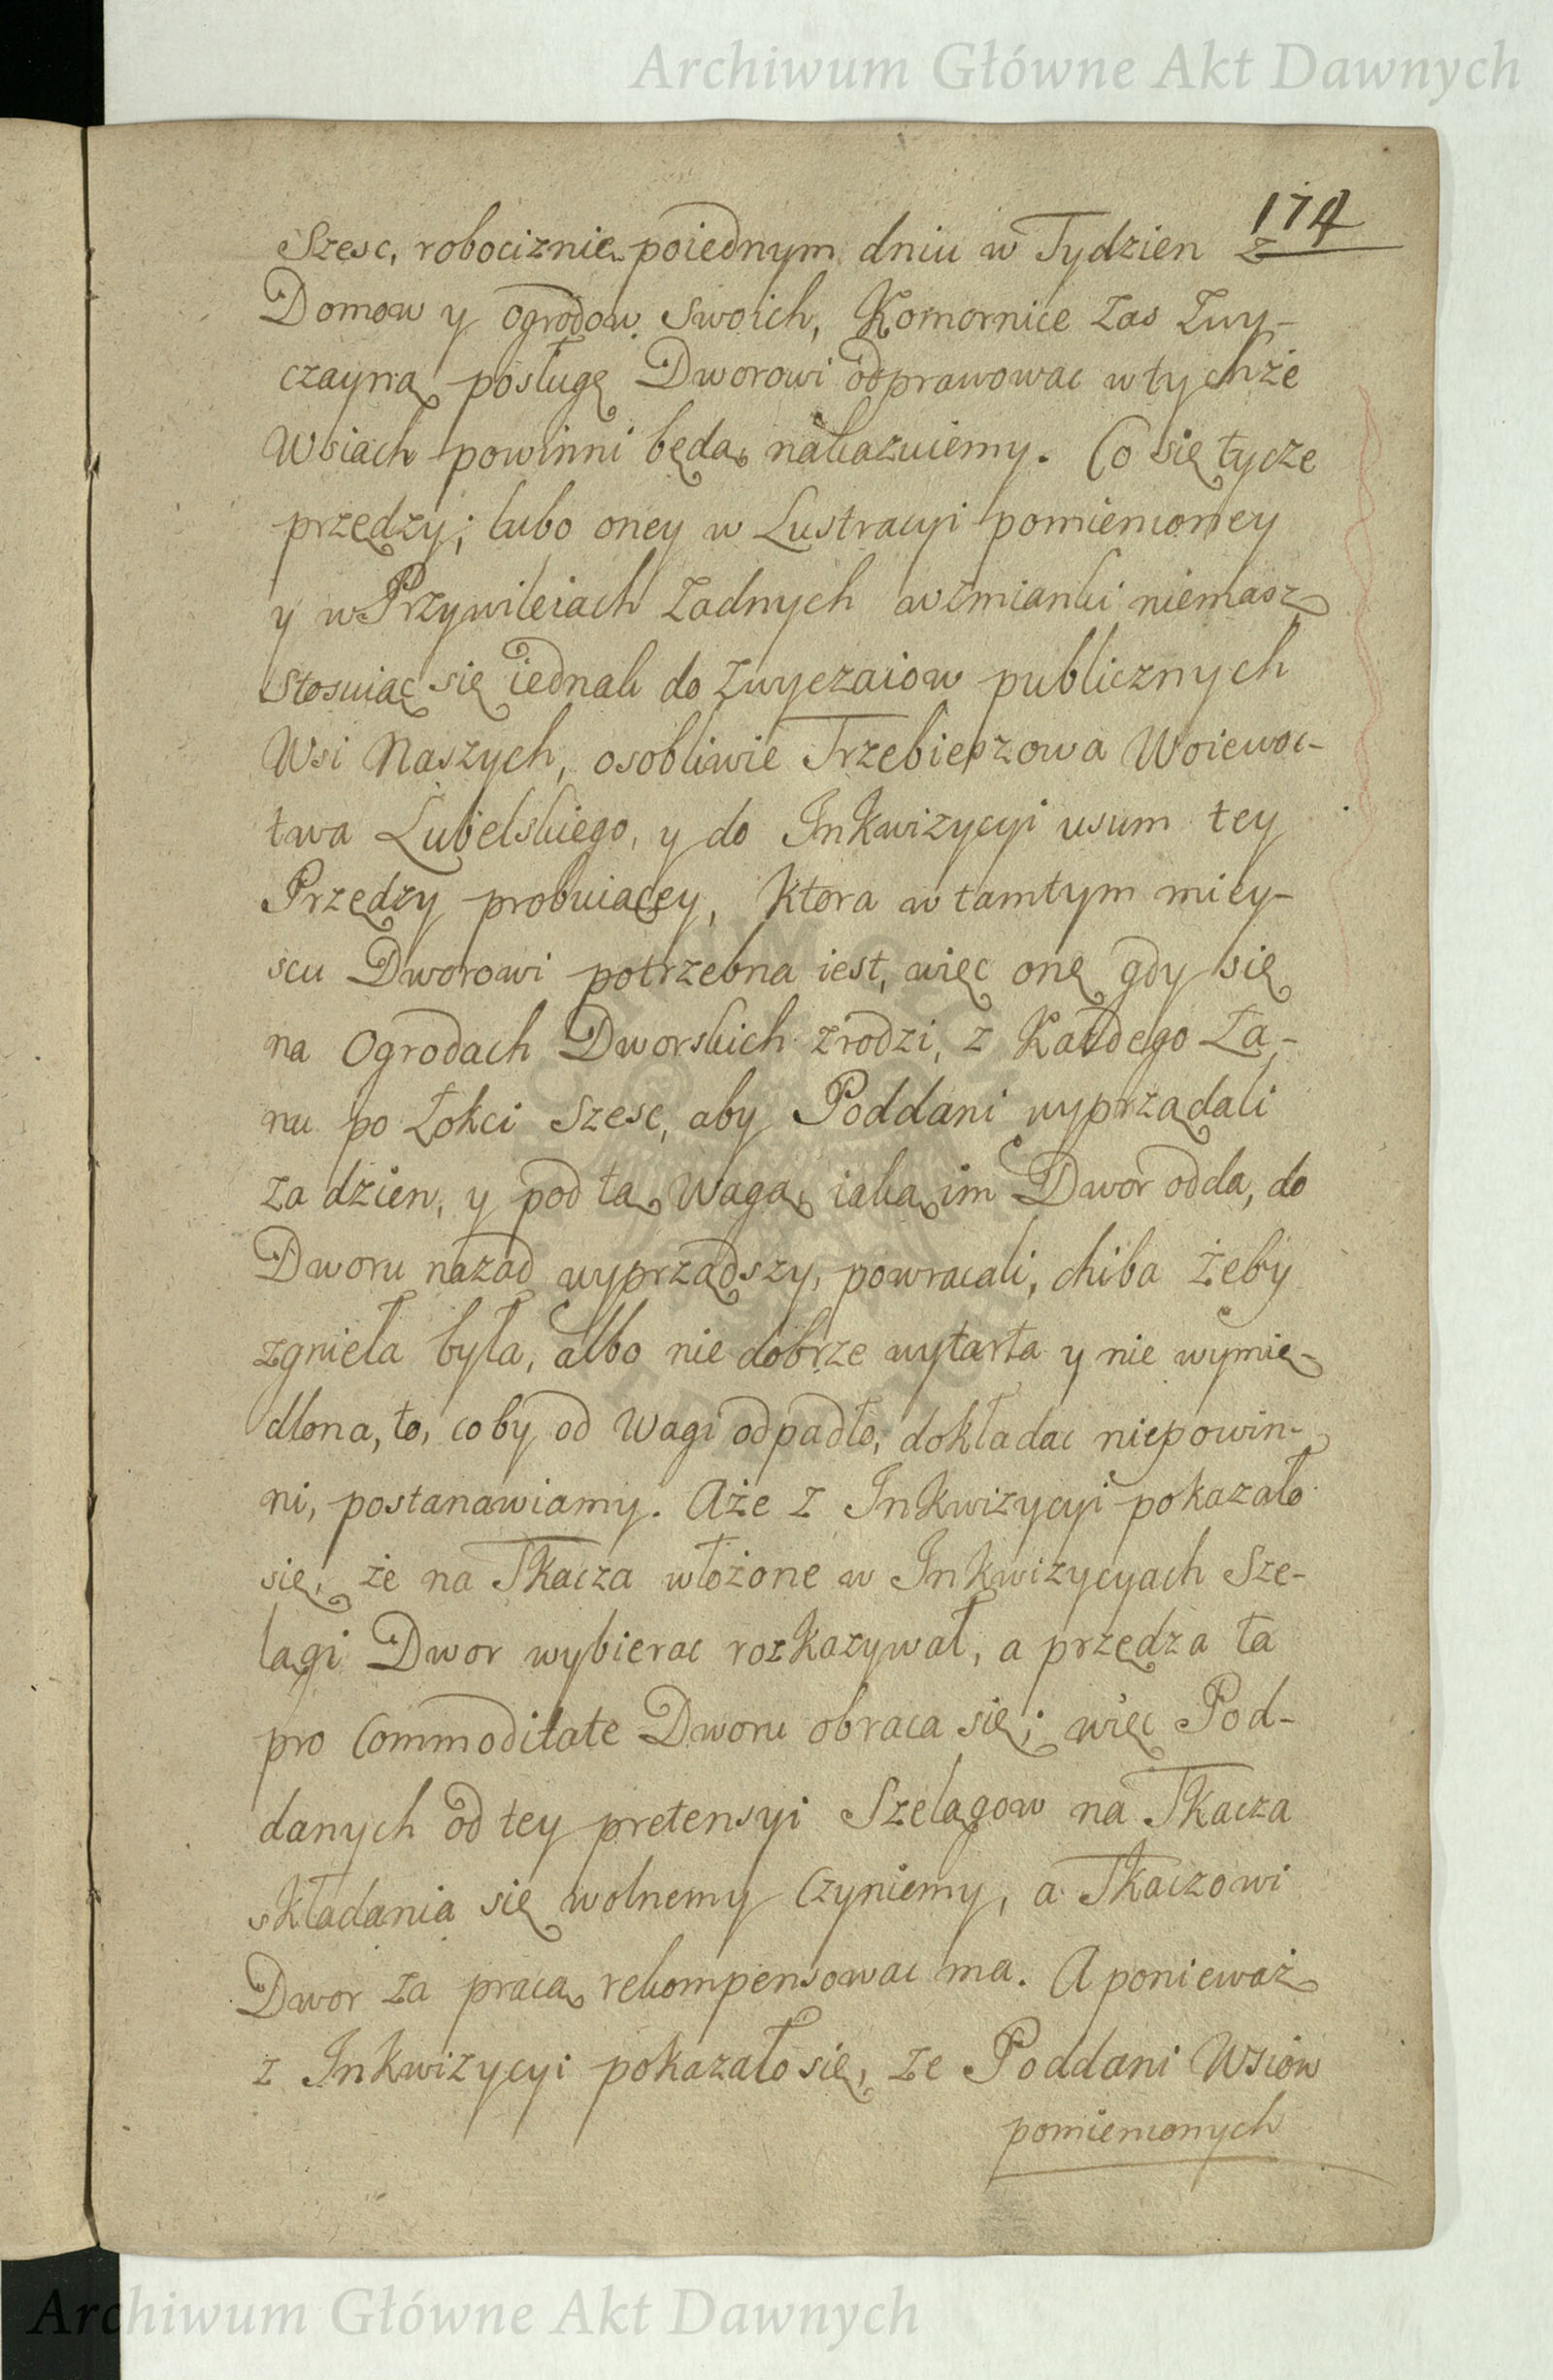 Archiwum Główne Akt Dawnych
174
Szesc, robociznie poiednym dniu w Tydzien z
Domow y ogrodow swoich, Komornice zas zwy-
czayną posługę Dworowi odprawowac wtychże
Wsiach powinni będą, nakazuiemy. Co się tycze
przędzy; lubo oney w Lustracyi pomienioney
y w Przywileiach żadnych wzmianki niemasz
stosuiąc się iednak do zwyczaiow publicznych
Wsi Naszych, osobliwie Trzebieszowa Woiewoc-
twa Lubelskiego, y do Inkwizycyi usum tey
Przędzy probuiącey, Ktora w tamtym miey-
scu Dworowi potrzebna iest, więc onę gdy się
na Ogrodach Dworskich zrodzi, z Każdego Ła-
nu po Łokci Szesc, aby Poddani wyprządali
za dzien, y pod tą Wagą iaką im Dwor odda, do
Dworu nazad wyprządszy, powracali, chiba żeby
zgnieła była, albo nie dobrze wytarta y nie wymię-
dlona, to, coby od Wagi odpadło, dokładac niepowin-
ni, postanawiamy. Aże z Inkwizycyi pokazało
się, że na Tkacza włożone w Inkwizycyach Sze-
lągi Dwor wybierac rozkazywał, a przędza ta
pro Commoditate Dworu obraca się; więc Pod-
danych od tey pretensyi Szelągow na Tkacza
składania się wolnemy Czyniemy, a Tkaczowi
Dwor za pracą rekompensowac ma. A ponieważ
z Inkwizycyi pokazało się, ze Poddani Wsiow
pomienionych
Archiwum Główne Akt Dawnych